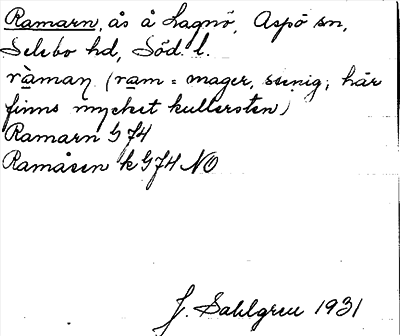 Ramarn, ås å Lagnö, Aspö sn,
Selebo hd, Söd. l.
ràmaṇ (ram = mager, senig; här
finns mycket kullersten)
Ramarn G 74
Ramåsen k G 74 NO
J. Sahlgren 1931